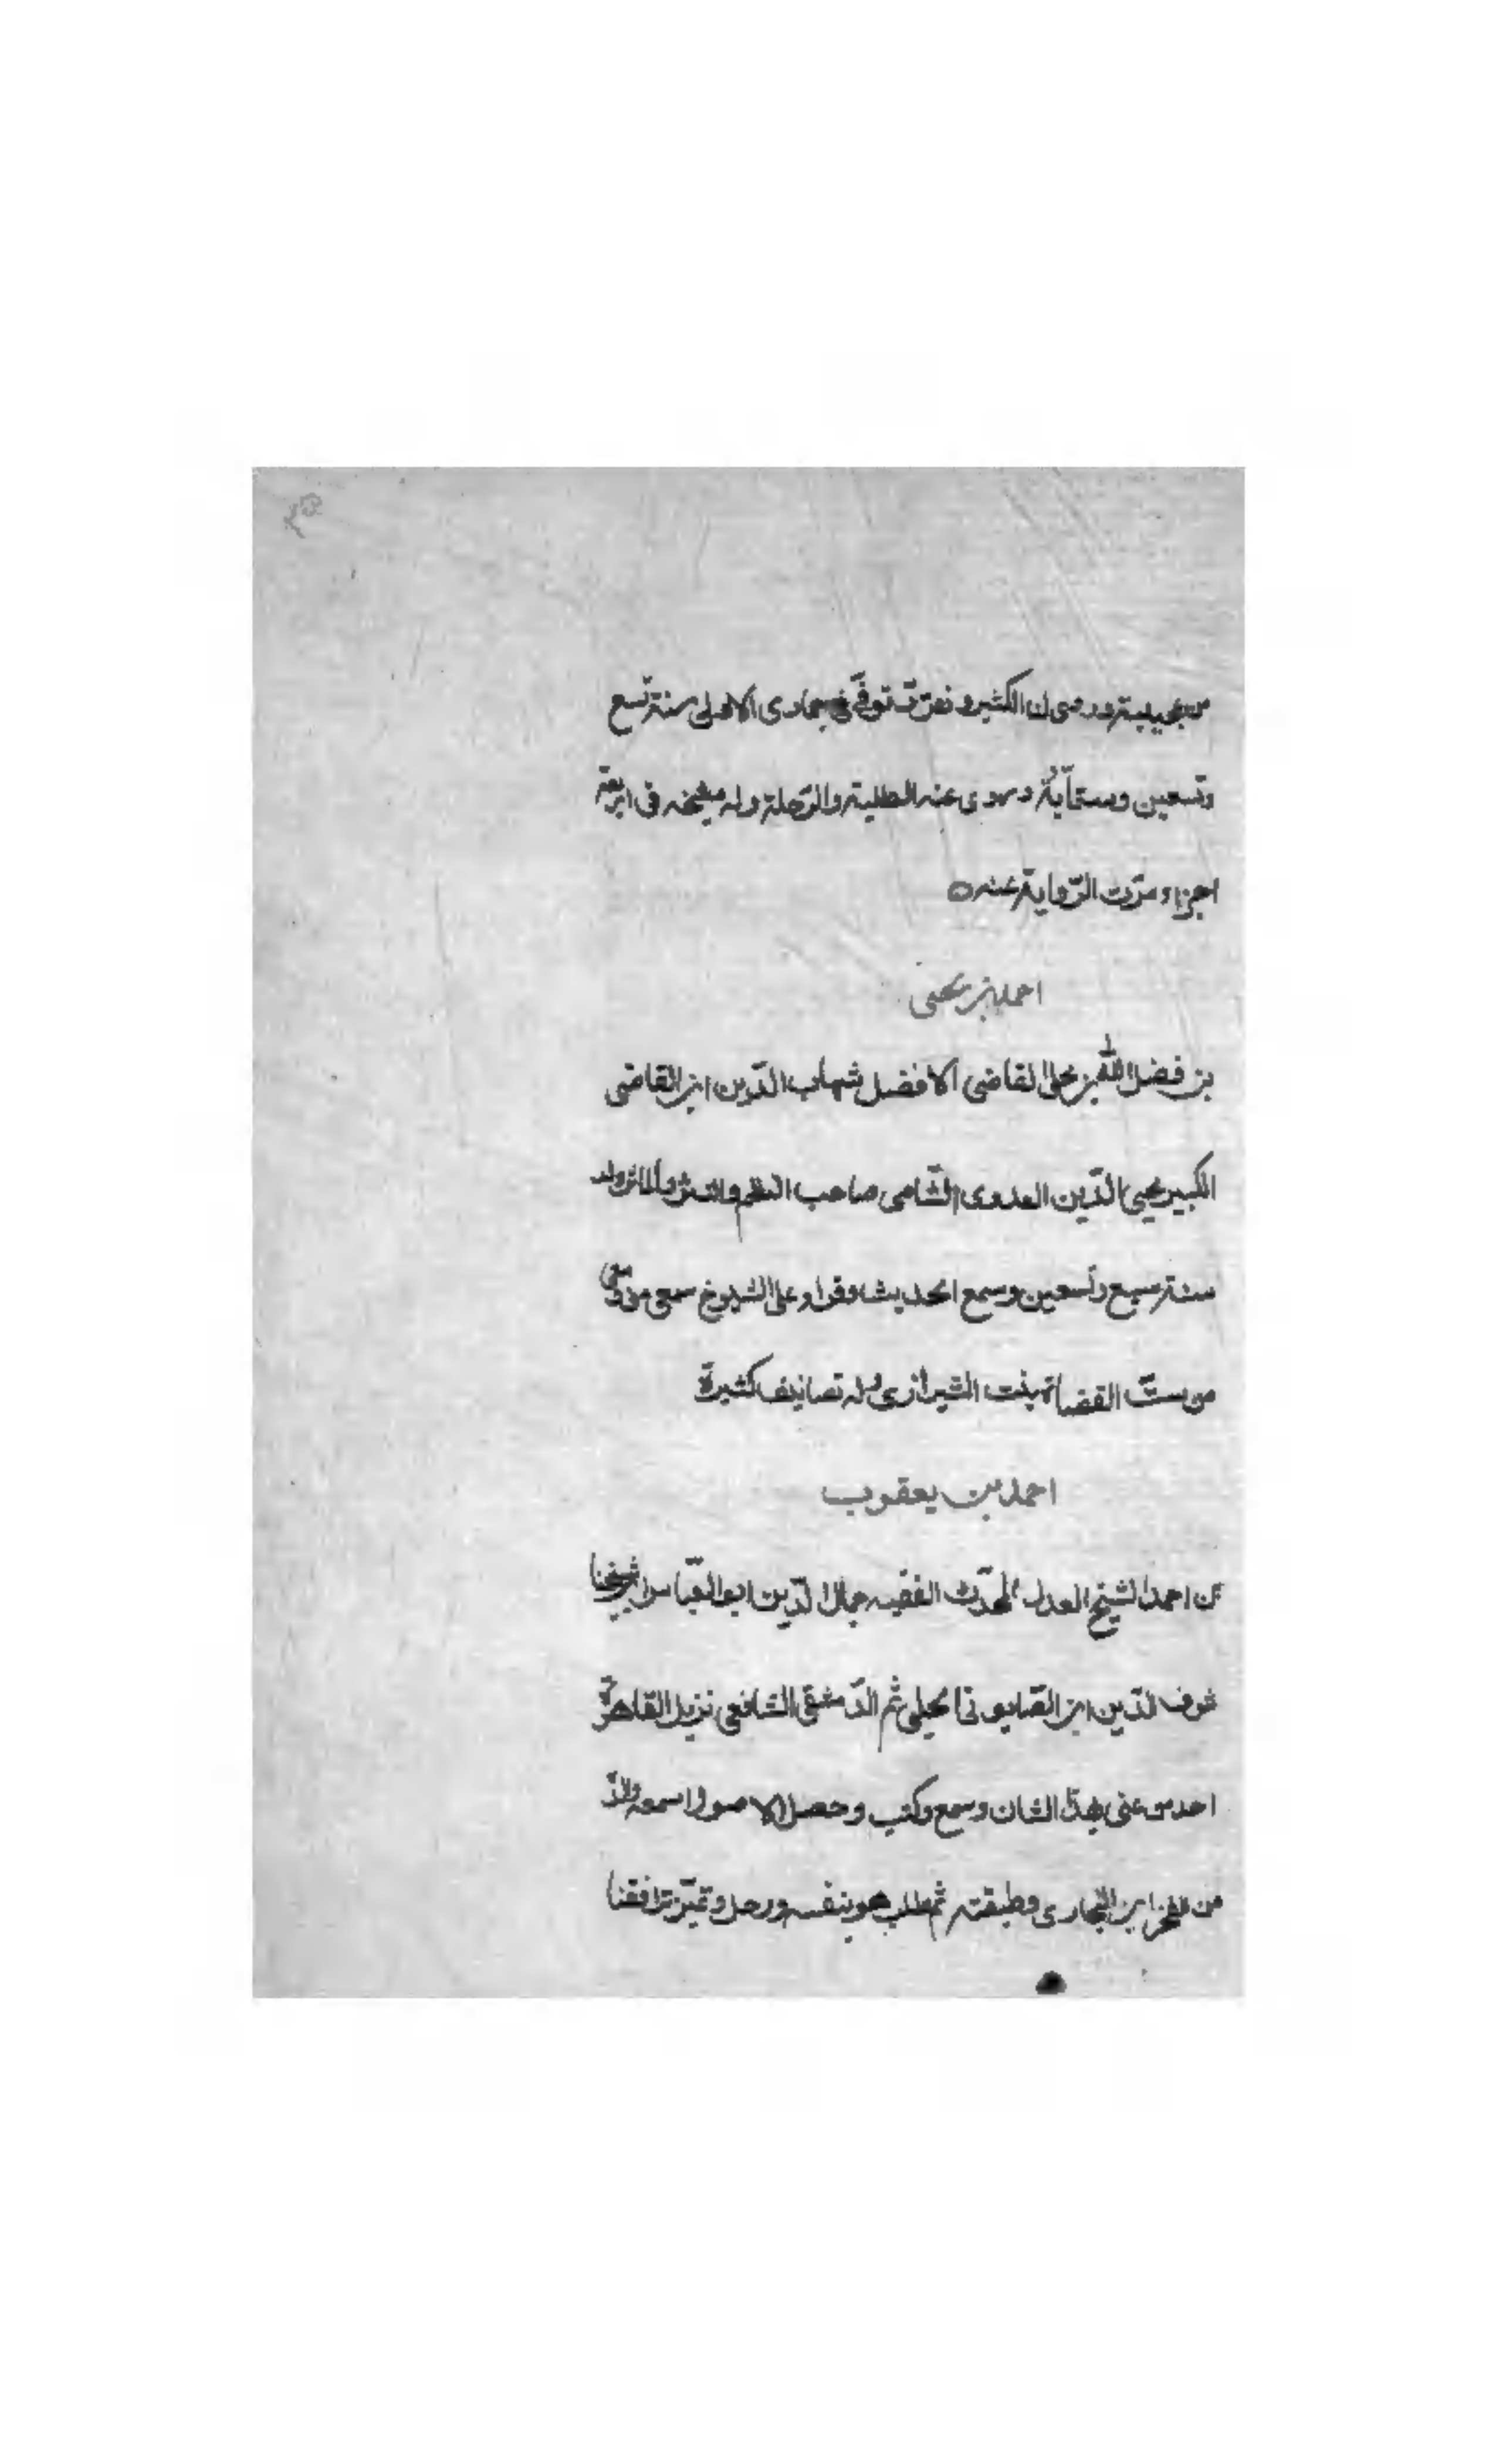 ٢٥
وروى لنا الكثير وتفرد توفي في جمادى الاولى سنة تسع
وتسعين وستمأية وروى عنه الطلبة والرّحلة وله مشيخة في اربعة
اجزاء ومرّت الرّواية عنه ه
احمد بن يحيى
بن فضل الله بن مجلي القاضي الافضل شهاب الدّين ابن القاضي
الكبير محيي الدّين العدوى الشّامي صاحب النظم والنثر والمآثر ولد
سنة سبع وتسعين وسمع الحديث وقراء على الشيوخ سمع معي
من ستّ القضاة بنت الشيرازى وله تصانيف كثيرة
احمد بن يعقوب
بن احمد الشيخ العدل المحدّث الفقيه جمال الدّين ابو العبّاس ابن شيخنا
شرف الدّين ابن الصّابوني الحلبي ثم الدّمشقي الشافعي نزيل القاهرة
احد من عني بهذا الشان وسمع وكتب وحصل الاصول اسمعه والدُ
من الفخر ابن البخارى وطبقته ثم طلب هو بنفسه ورحل وتميّز ترافقنا